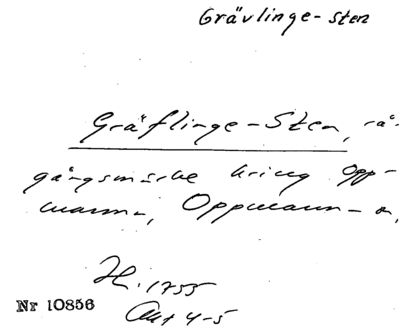 Grävlinge-sten
Gräflinge-Sten, rå-
gångsmärke kring Opp-
manna, Oppmann-a,
H. 1755
Akt 4-5
Nr 10856